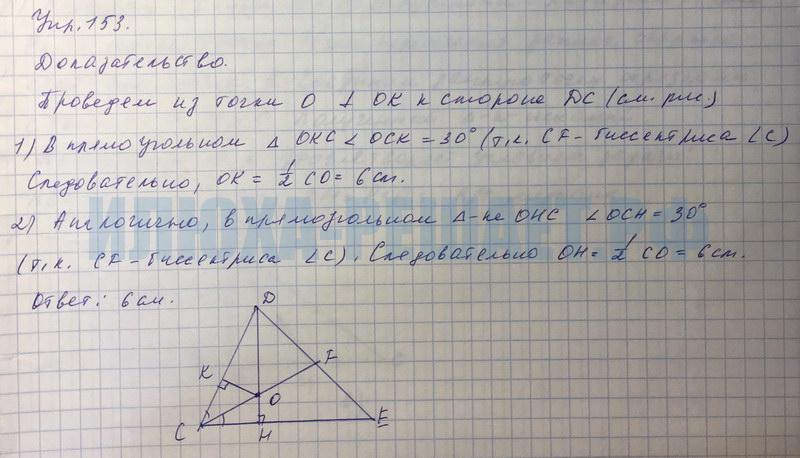 Упр. 153.
Доказательство.
Проведем из точки O ⊥ OK к стороне DC (см. рис.)
1) В прямоугольном Δ OKC ∠ OCK = 30° (т.к. CF - биссектриса ∠C)
Следовательно, OK = 1/2 CO = 6 см.
2) Аналогично, в прямоугольном Δ-ке OHC ∠OCH = 30°
(т.к. CF - биссектриса ∠C). Следовательно OH = 1/2 CO = 6 см.
Ответ: 6 см.
D
F
K
O
C
H
E